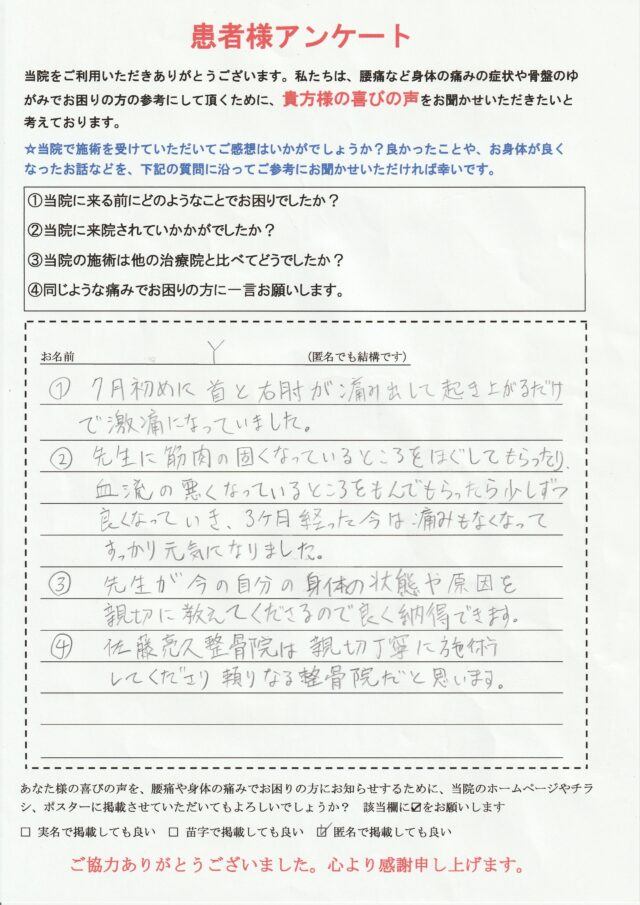 患者様アンケート
当院をご利用いただきありがとうございます。私たちは、腰痛など身体の痛みの症状や骨盤のゆ
がみでお困りの方の参考にして頂くために、貴方様の喜びの声をお聞かせいただきたいと
考えております。
☆当院で施術を受けていただいてご感想はいかがでしょうか？良かったことや、お身体が良く
なったお話などを、下記の質問に沿ってご参考にお聞かせいただければ幸いです。
①当院に来る前にどのようなことでお困りでしたか？
②当院に来院されていかかがでしたか？
③当院の施術は他の治療院と比べてどうでしたか？
④同じような痛みでお困りの方に一言お願いします。
お名前 Y (匿名でも結構です)
① 7月初めに首と右肘が痛み出して起き上がるだけ
で激痛になっていました。
② 先生に筋肉の固くなっているところをほぐしてもらったり、
血流の悪くなっているところをもんでもらったら少しずつ
良くなっていき、3ケ月経った今は痛みもなくなって
すっかり元気になりました。
③ 先生が今の自分の身体の状態や原因を
親切に教えてくださるので良く納得できます。
④ 佐藤亮久整骨院は親切丁寧に施術
してくださり頼りなる整骨院だと思います。
あなた様の喜びの声を、腰痛や身体の痛みでお困りの方にお知らせするために、当院のホームページやチラ
シ、ポスターに掲載させていただいてもよろしいでしょうか？ 該当欄に☑をお願いします
☐ 実名で掲載しても良い ☐ 苗字で掲載しても良い ☑ 匿名で掲載しても良い
ご協力ありがとうございました。心より感謝申し上げます。